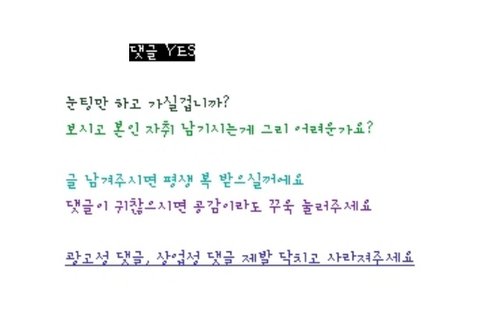 댓글 YES
눈팅만 하고 가실겁니까?
보시고 본인 자취 남기시는게 그리 어려운가요?
글 남겨주시면 평생 복 받으실꺼에요
댓글이 귀찮으시면 공감이라도 꾸욱 눌러주세요
광고성 댓글, 상업성 댓글 제발 닥치고 사라져주세요